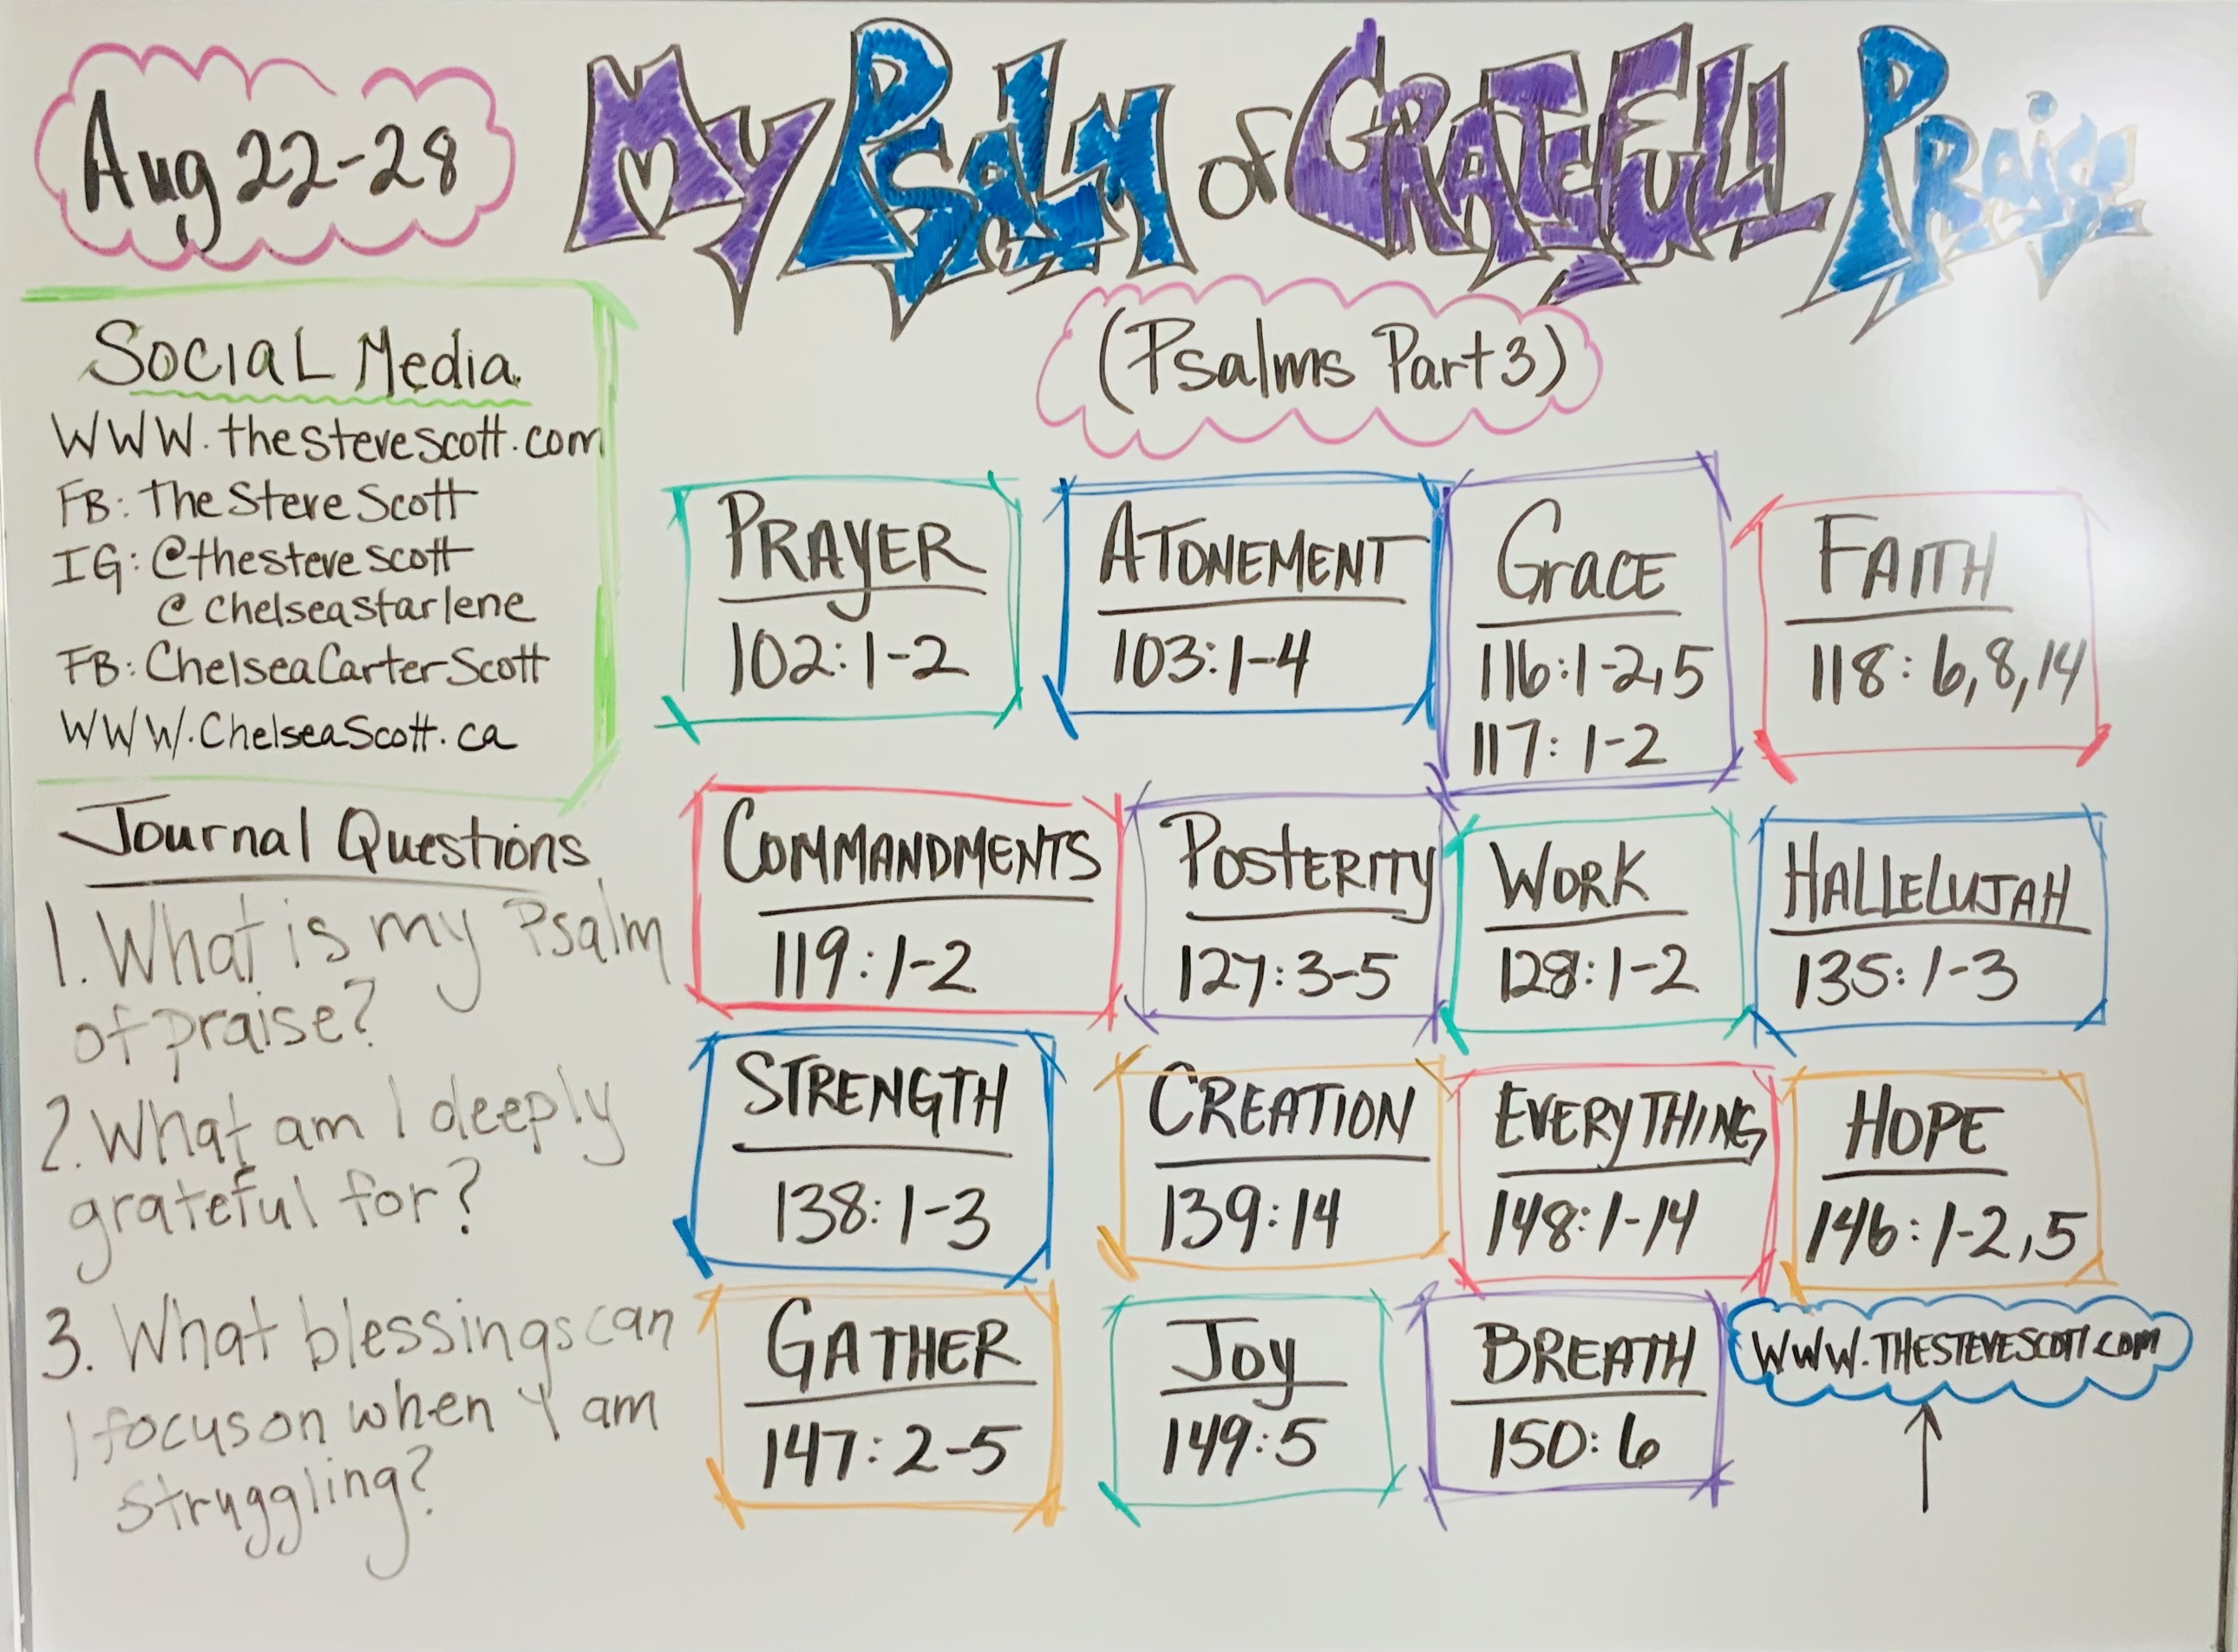 Aug 22-28
My Psalm of Gratefull Praise
(Psalms Part 3)
Social Media
www.thestevescott.com
FB: The Steve Scott
IG: @thestevescott
@chelseastarlene
FB: ChelseaCarterScott
www.ChelseaScott.ca
Journal Questions
1. What is my Psalm
of praise?
2. What am I deeply
grateful for?
3. What blessings can
I focus on when I am
struggling?
PRAYER
102:1-2
ATONEMENT
103:1-4
GRACE
116:1-2,5
117:1-2
FAITH
118:6,8,14
COMMANDMENTS
119:1-2
POSTERITY
127:3-5
WORK
128:1-2
HALLELUJAH
135:1-3
STRENGTH
138:1-3
CREATION
139:14
EVERYTHING
148:1-14
HOPE
146:1-2,5
GATHER
147:2-5
JOY
149:5
BREATH
150:6
WWW.THESTEVESCOTT.COM